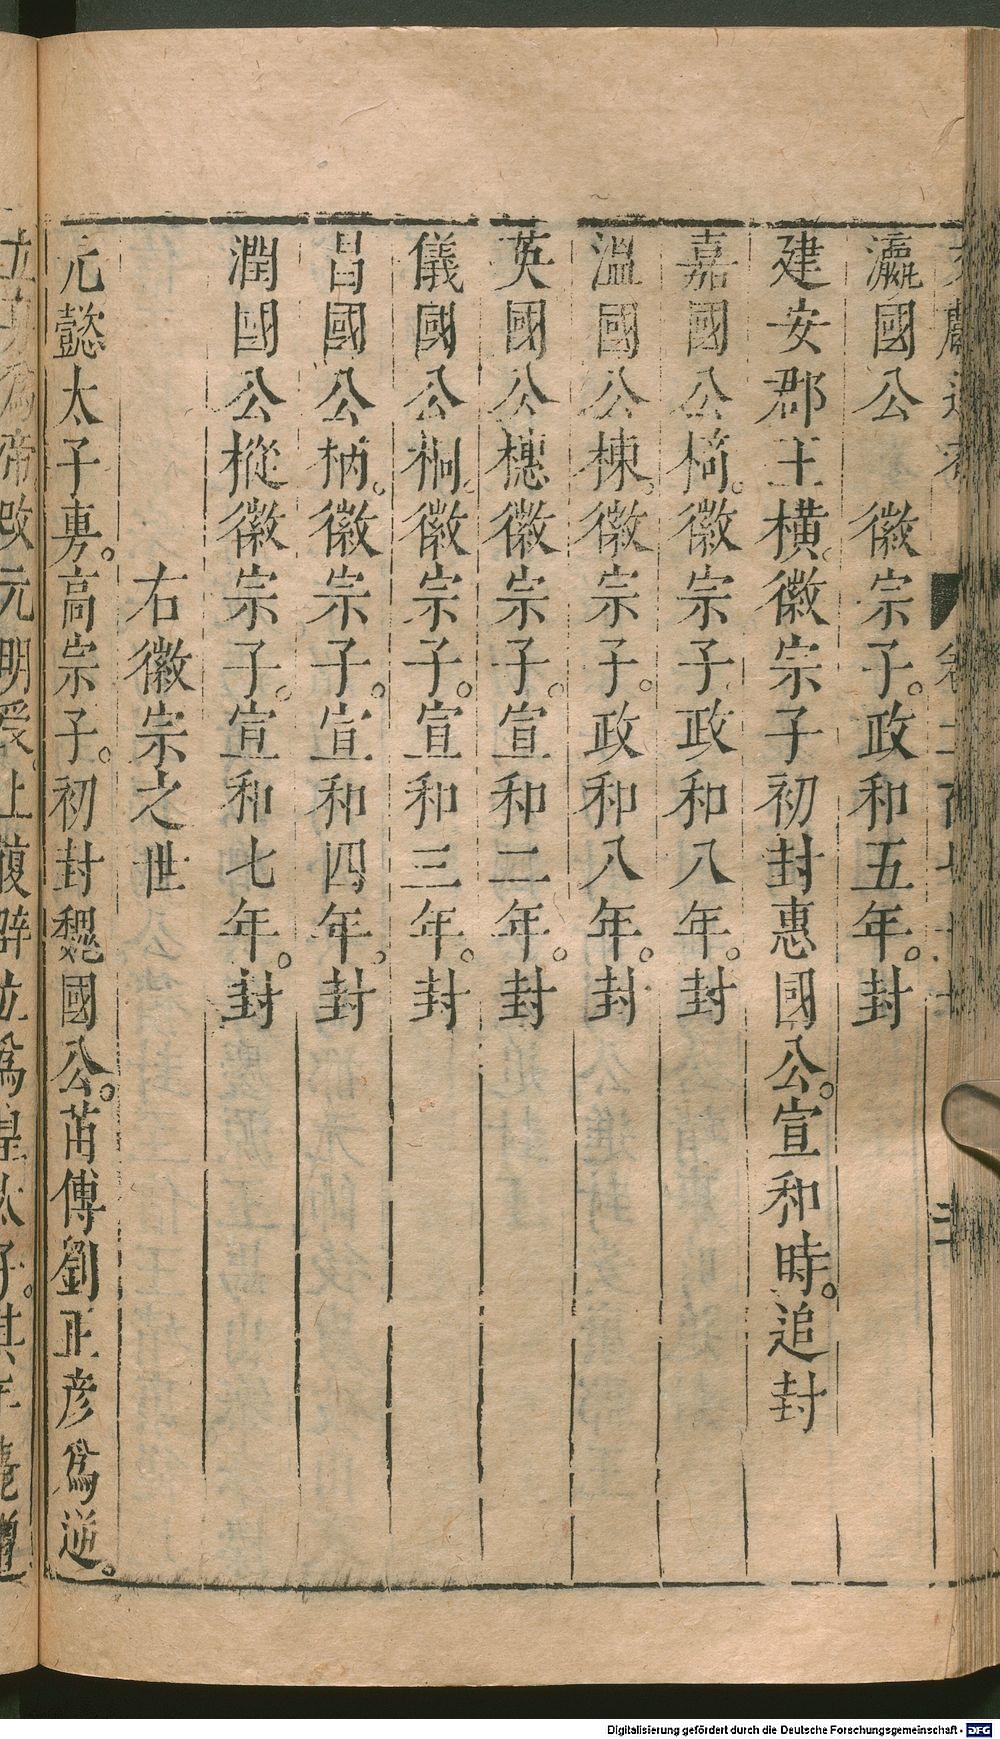 瀛國公　徽宗子。政和五年。封
建安郡王橫。徽宗子初封惠國公。宣和時。追封
嘉國公椅。徽宗子政和八年。封
溫國公棟。徽宗子。政和八年。封
英國公橞徽宗子。宣和二年。封
儀國公桐。徽宗子。宣和三年。封
昌國公柄。徽宗子。宣和四年。封
潤國公樅徽宗子。宣和七年。封
右徽宗之世
元懿太子旉。高宗子。初封魏國公。苗傅劉正彥爲逆。
立
爲帝改元明受。上復辟立爲皇太子。其年薨
Digitalisierung gefördert durch die Deutsche Forschungsgemeinschaft - DFG